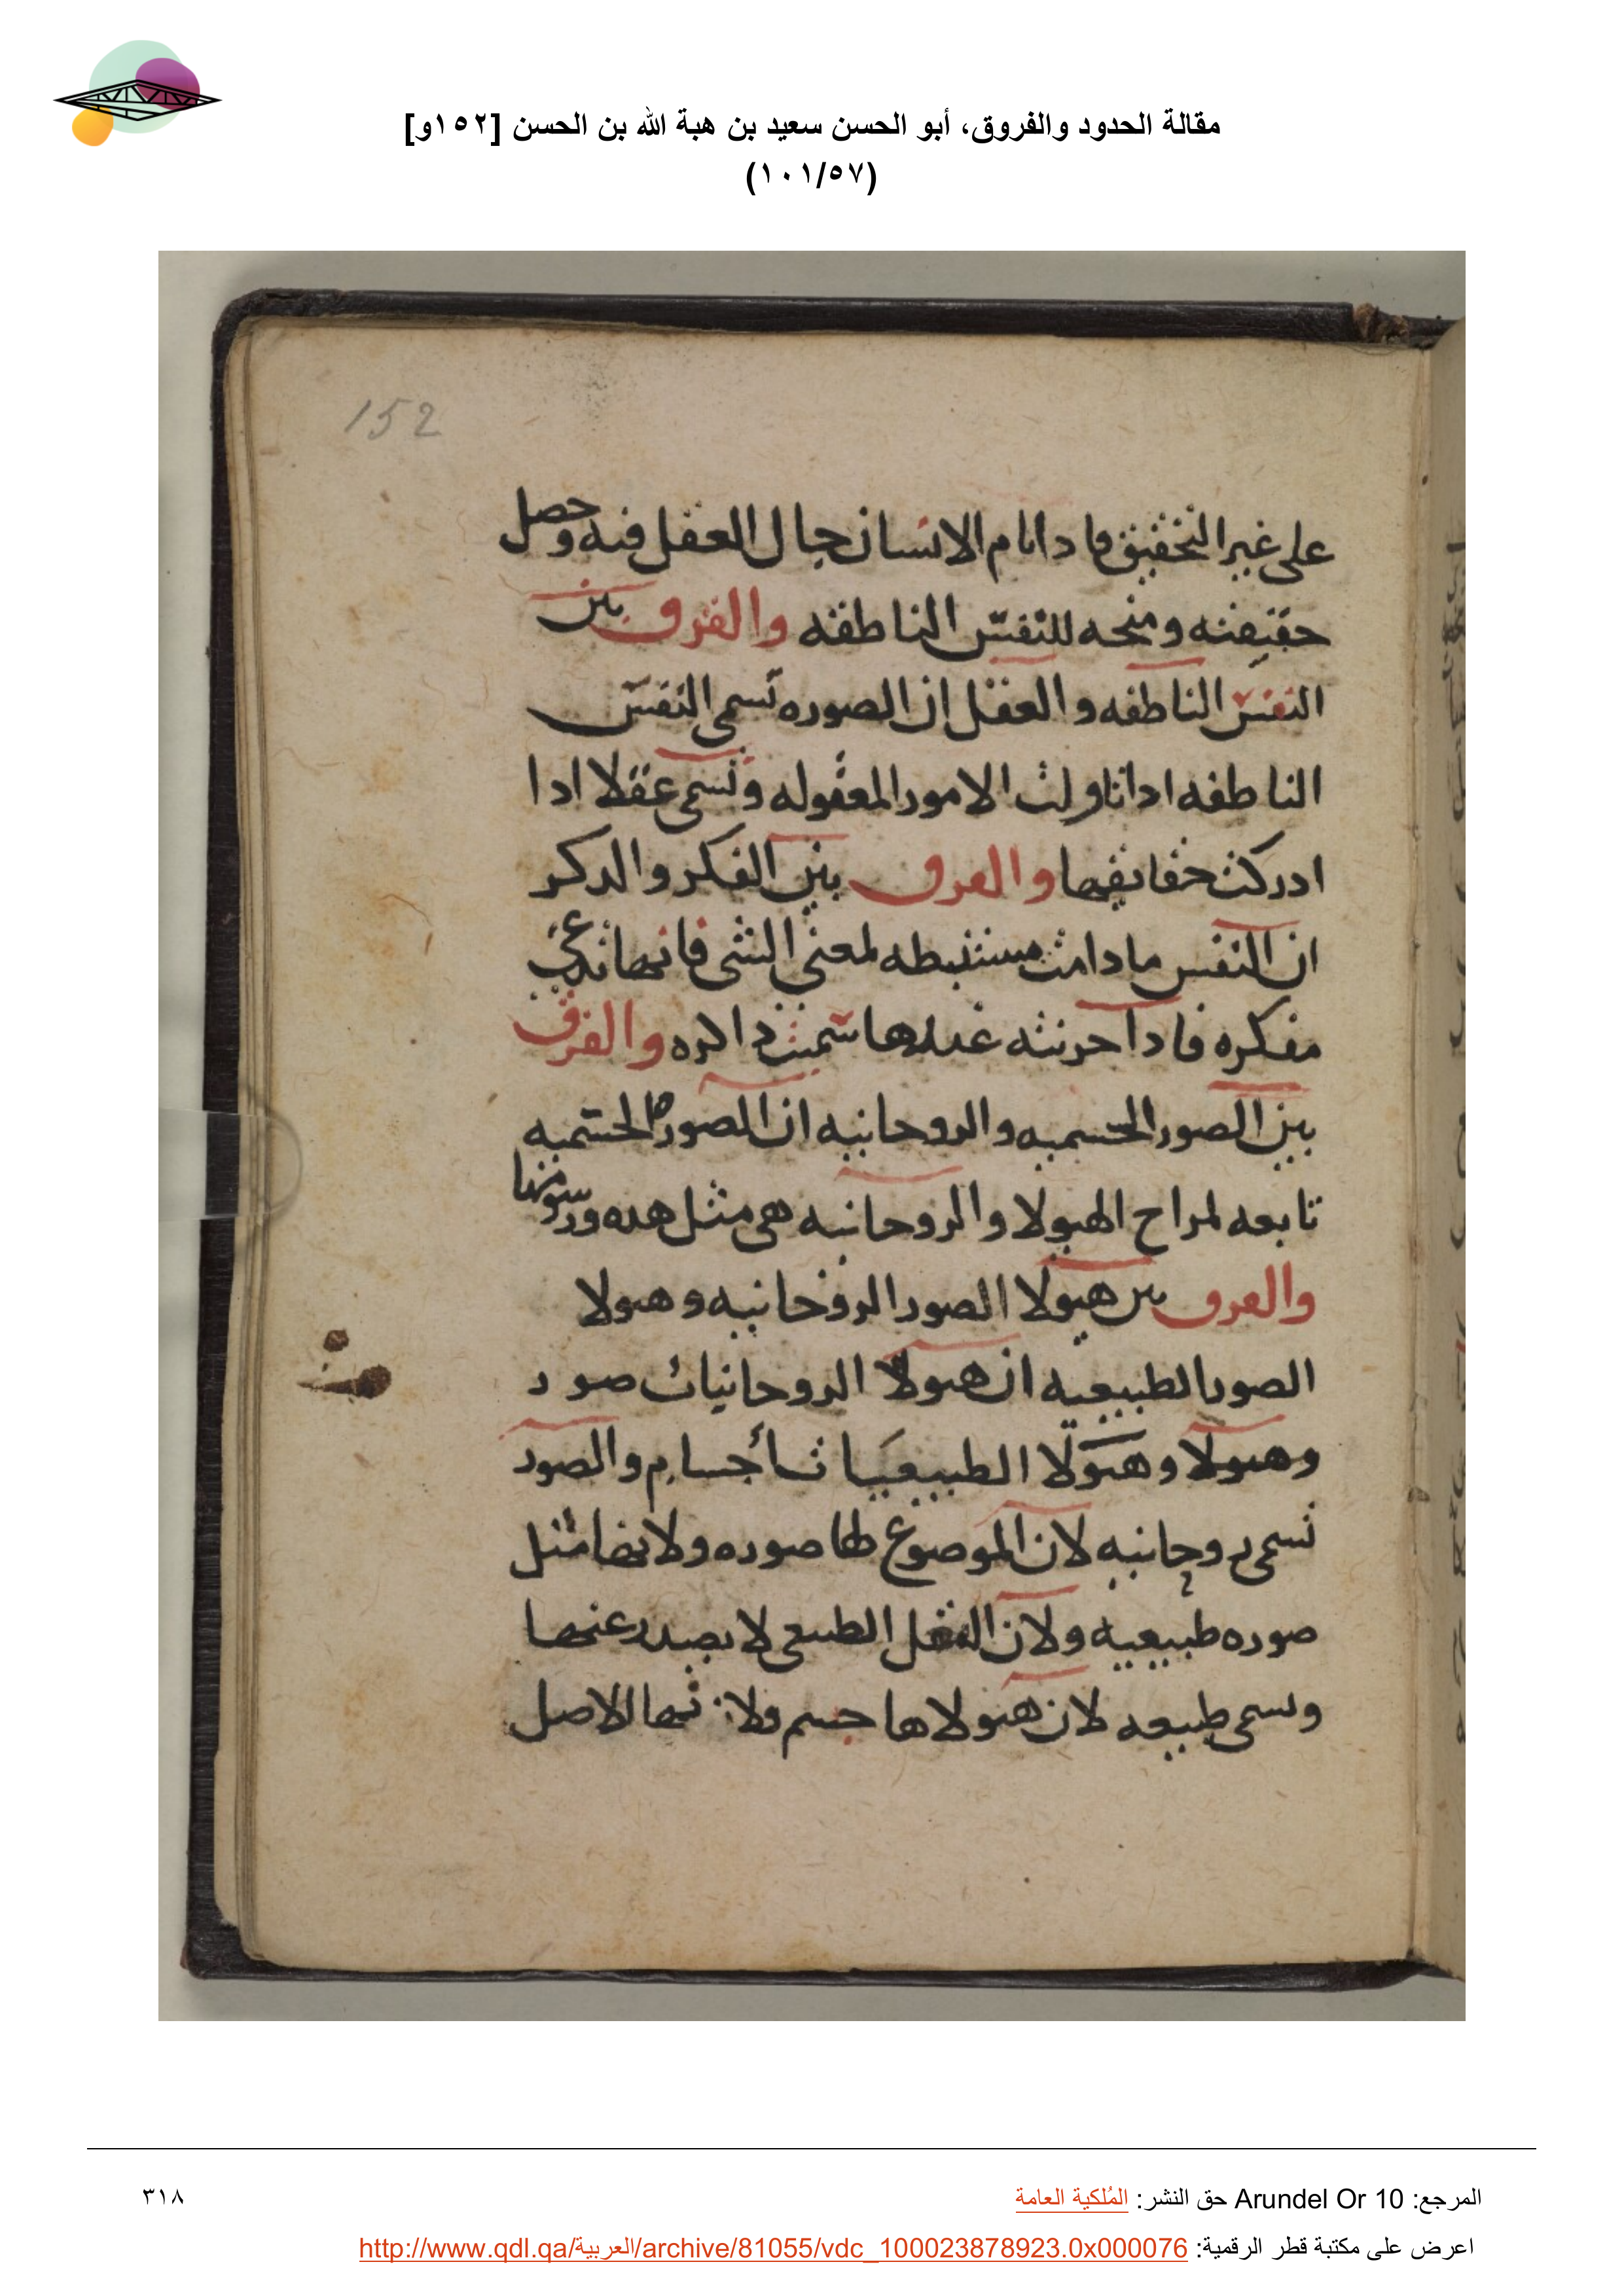 مقالة الحدود والفروق، أبو الحسن سعيد بن هبة الله بن الحسن [١٥٢و]
(١٠١/٥٧)
152
على غير التحقيق فادا نام الانسان جال العقل فيه وحصل
حقيقته ومنحه للنفس الناطقه والفرق بين
النفس الناطقه والعقل ان الصوره تسمى النفس
الناطقه ادا تناولت الامور المعقوله وتسمى عقلا ادا
ادركت حقائقها والفرق بين الفكر والدكر
ان النفس مادامت مستنبطه لمعنى الشى فانها تدعى
مفكره فادا خزنته عندها سميت داكره والفرق
بين الصور الجسميه والروحانيه ان الصوره الجسميه
تابعه لمزاج الهيولا والروحانيه هى مثل هده ورسومها
والفرق بين هيولا الصور الروحانيه وهيولا
الصور الطبيعيه ان هيولا الروحانيات صور
وهيولا وهيولا الطبيعيات أجسام والصور
تسمى روحانيه لان الموضوع لها صوره ولانها مثل
صوره طبيعيه ولان الفعل الطبيعى لا يصدر عنها
وتسمى طبيعيه لان هيولاها جسم ولانها الاصل
المرجع: Arundel Or 10 حق النشر: المُلكية العامة
٣١٨
اعرض على مكتبة قطر الرقمية: http://www.qdl.qa/العربية/archive/81055/vdc_100023878923.0x000076